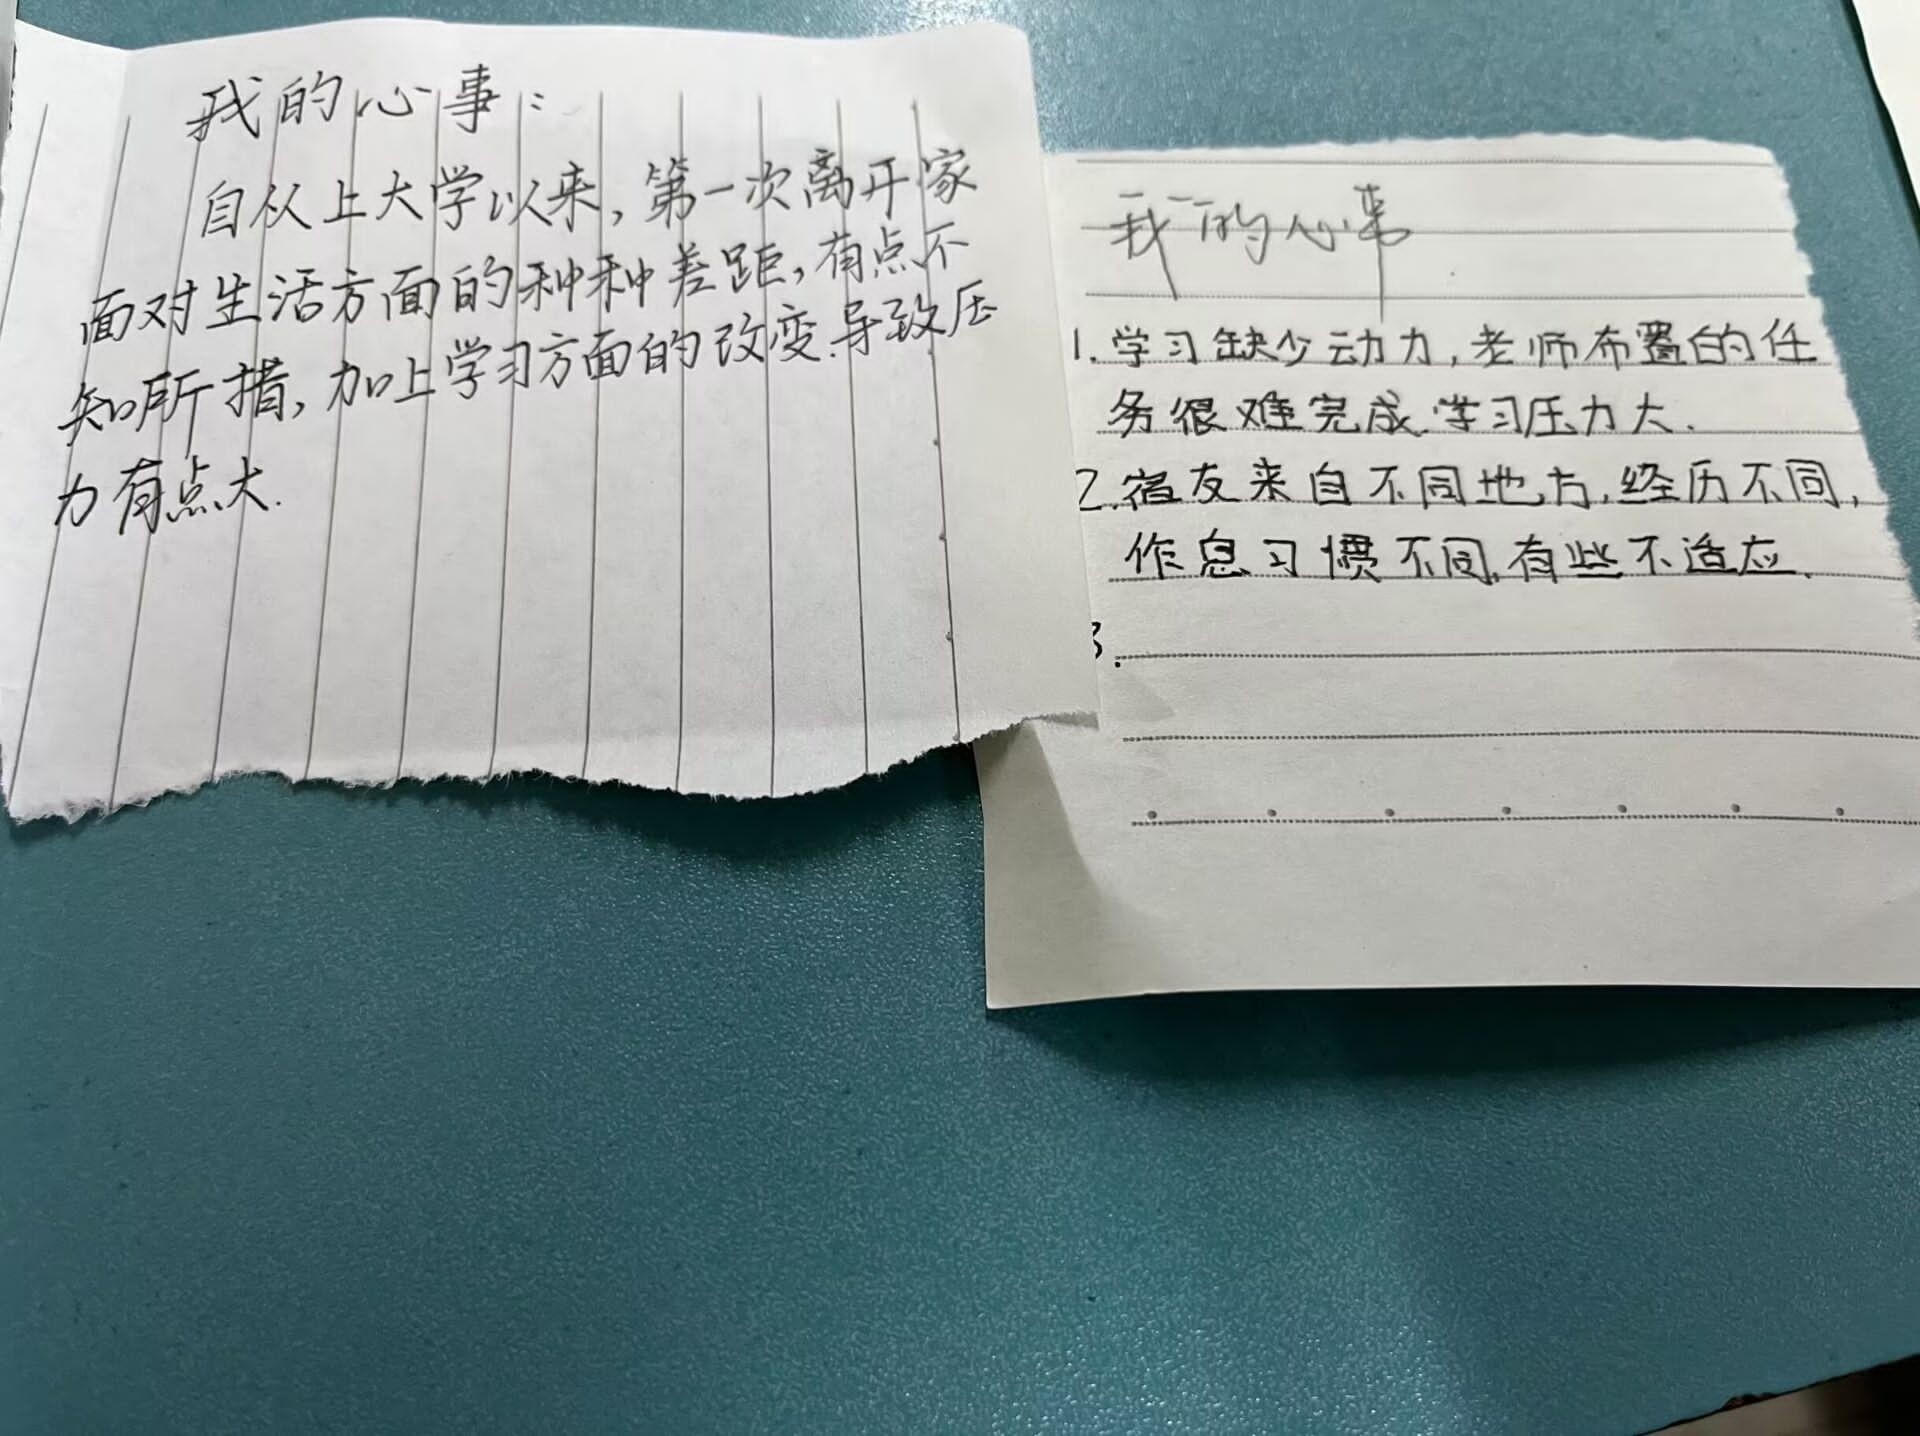 我的心事：
自从上大学以来,第一次离开家
面对生活方面的种种差距,有点不
知所措,加上学习方面的改变.导致压
力有点大.
我的心事
1.学习缺少动力,老师布置的任
务很难完成.学习压力大.
2.宿友来自不同地方,经历不同,
作息习惯不同,有些不适应.
3.